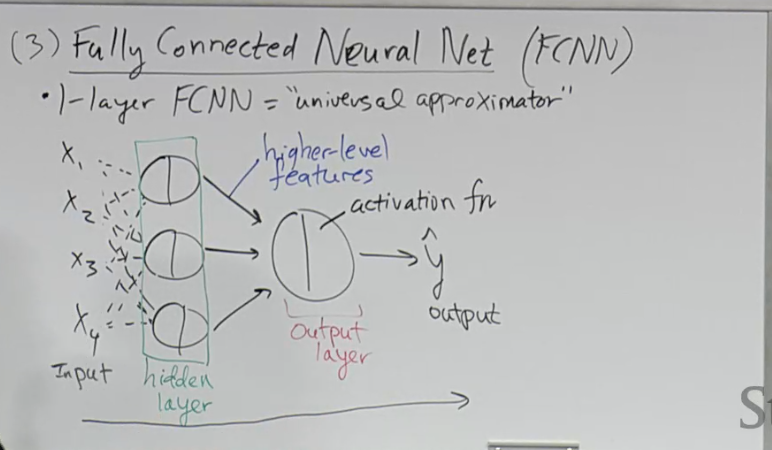 (3) Fully Connected Neural Net (FCNN)
• 1-layer FCNN = "universal approximator"
x₁
x₂
x₃
x₄
Input
hidden
layer
higher-level
features
activation fn
output
layer
ŷ
output